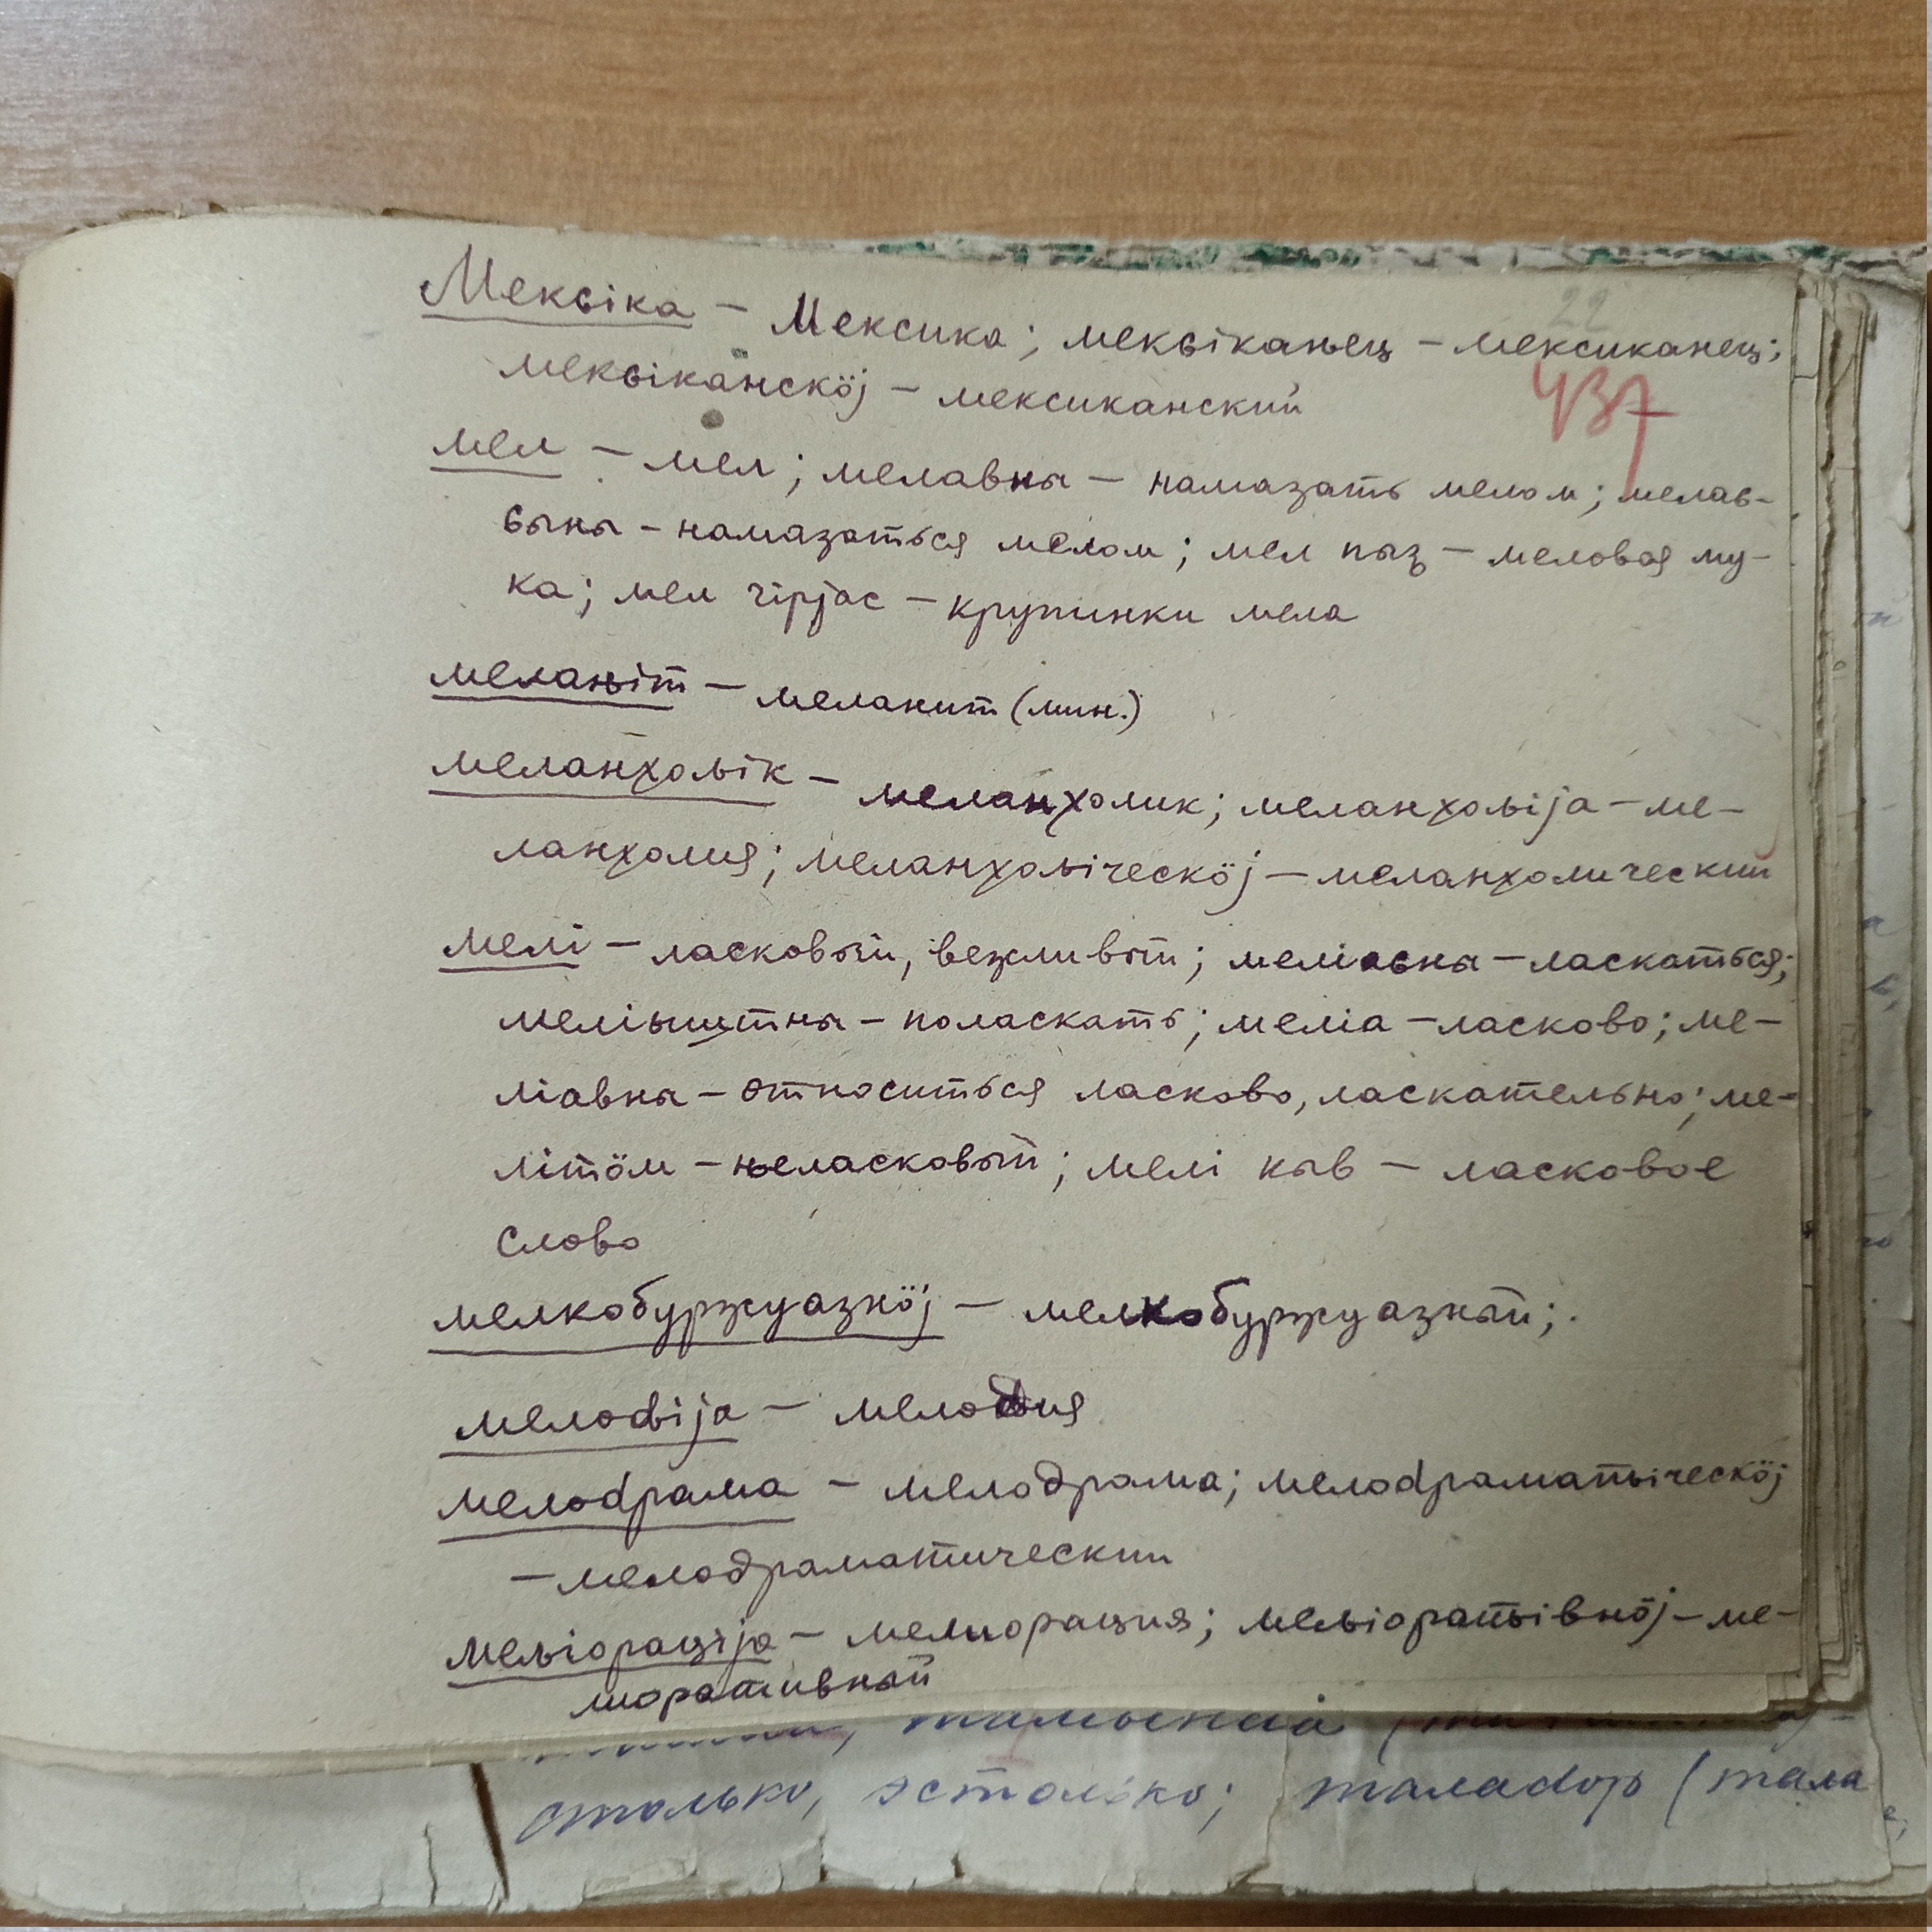 Мекԍіка – Мексика; мекԍікаԋец – мексиканец;
22
мекԍіканскӧј – мексиканский
437
мел – мел; мелавны – намазать мелом; мелав-
ԍыны – намазаться мелом; мел пыԅ – меловая му-
ка; мел чірјас – крупинки мела
мелаԋіт – меланит (мин.)
меланхоԉік – меланхолик; меланхоԉіја – ме-
ланхолия; меланхоԉіческӧј – меланхолический
мелі – ласковый, вежливый; меліаԍны – ласкаться;
меліыштны – поласкать; меліа – ласково; ме-
ліавны – относиться ласково, ласкательно; ме-
літӧм – неласковый; мелі кыв – ласковое
слово
мелкобуржуазнӧј – мелкобуржуазный;
мелоԃіја – мелодия
мелоdрама – мелодрама; мелоdраматіческӧј
– мелодраматический
меԉіораціја – мелиорация; меԉіоратівнӧј – ме-
лиоративный
столько, эстолько; талаdор (тала